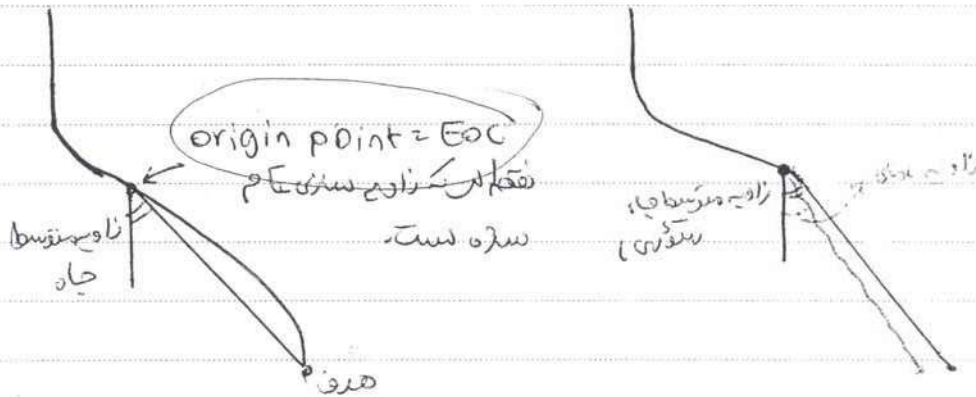 origin point = EOC
نقطه‌ای که زاویه سازی تمام
شده است.
زاویه متوسط
چاه
هدف
زاویه متوسط چاه
زاویه